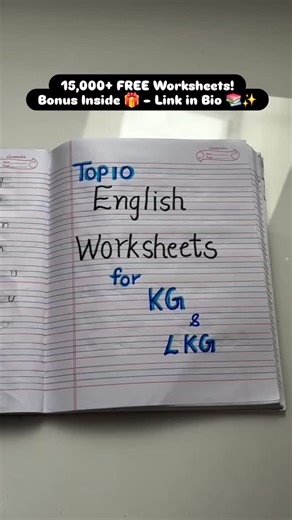 15,000+ FREE Worksheets!
Bonus Inside 🎁 – Link in Bio 📚✨
TOP10
English
Worksheets
for
KG
&
LKG